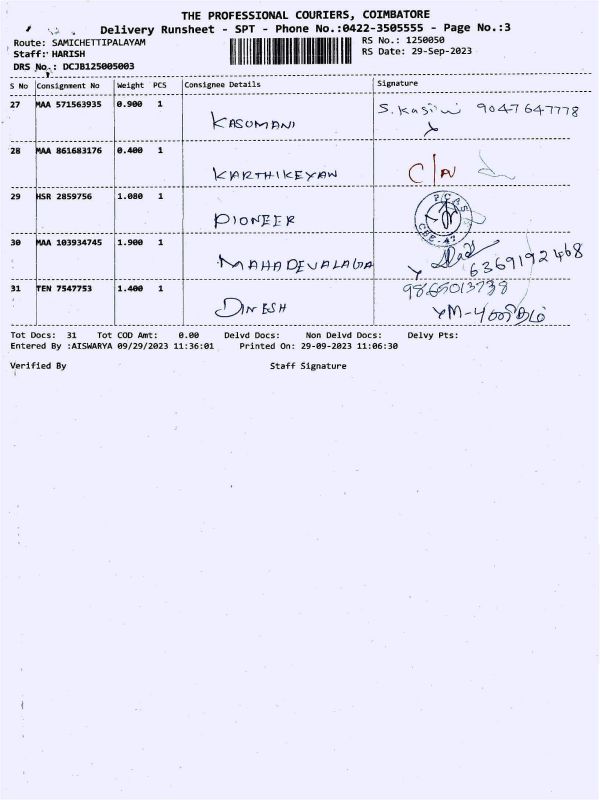 THE PROFESSIONAL COURIERS, COIMBATORE
Delivery Runsheet - SPT - Phone No.:0422-3505555 - Page No.:3
Route: SAMICHETTIPALAYAM
RS No.: 1250050
Staff: HARISH
RS Date: 29-Sep-2023
DRS No.: DCJB125005003
S No Consignment No Weight PCS Consignee Details Signature
27 MAA 571563935 0.900 1 KASUMANI S. Kasimi 9047647778
28 MAA 861683176 0.400 1 KARTHIKEYAN
29 HSR 2859756 1.080 1 PIONEER
30 MAA 103934745 1.900 1 MAHADEVALAGA 6369192468
31 TEN 7547753 1.400 1 DINESH
Tot Docs: 31 Tot COD Amt: 0.00 Delvd Docs: Non Delvd Docs: Delvy Pts:
Entered By :AISWARYA 09/29/2023 11:36:01 Printed On: 29-09-2023 11:06:30
Verified By Staff Signature